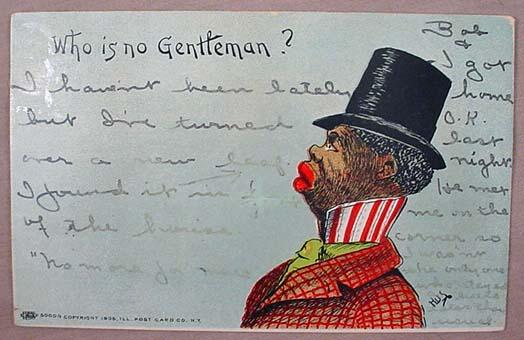 Who is no Gentleman?
I haven't been lately
but I've turned
over a new leaf.
I found it in
of the
"No more for me
Bob
&
I got
home
O.K.
last
night.
He met
me on the
corner so
I was not
the only one
who stayed
HWS
5006 COPYRIGHT 1905, ILL. POST CARD CO. N.Y.